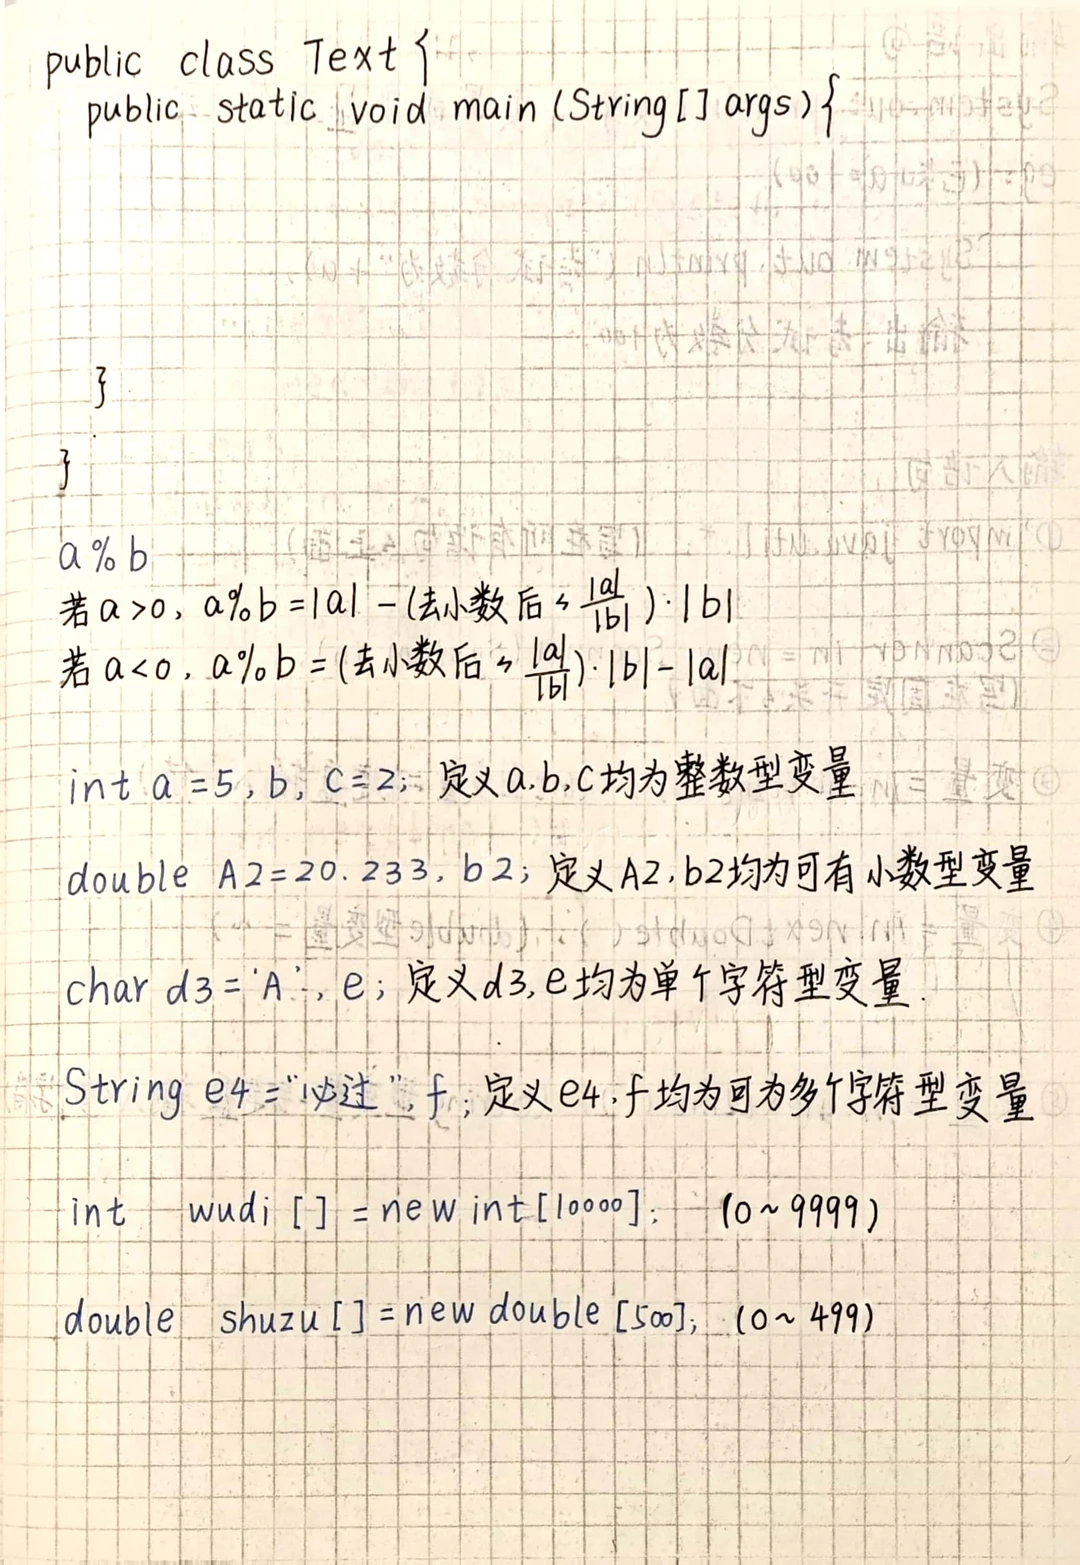 public class Text {
public static void main (String[] args) {
}
}
a % b
若a>0, a%b=|a| - (去小数后的 |a|/|b|)·|b|
若a<0, a%b=(去小数后的 |a|/|b|)·|b| - |a|
int a=5, b, c=2; 定义a,b,c均为整数型变量
double A2=20.233, b2; 定义A2,b2均为可有小数型变量
char d3='A', e; 定义d3,e均为单个字符型变量.
String e4="必过", f; 定义e4,f均为可为多个字符型变量
int wudi [] = new int[10000]; (0~9999)
double shuzu [] = new double [500]; (0~499)